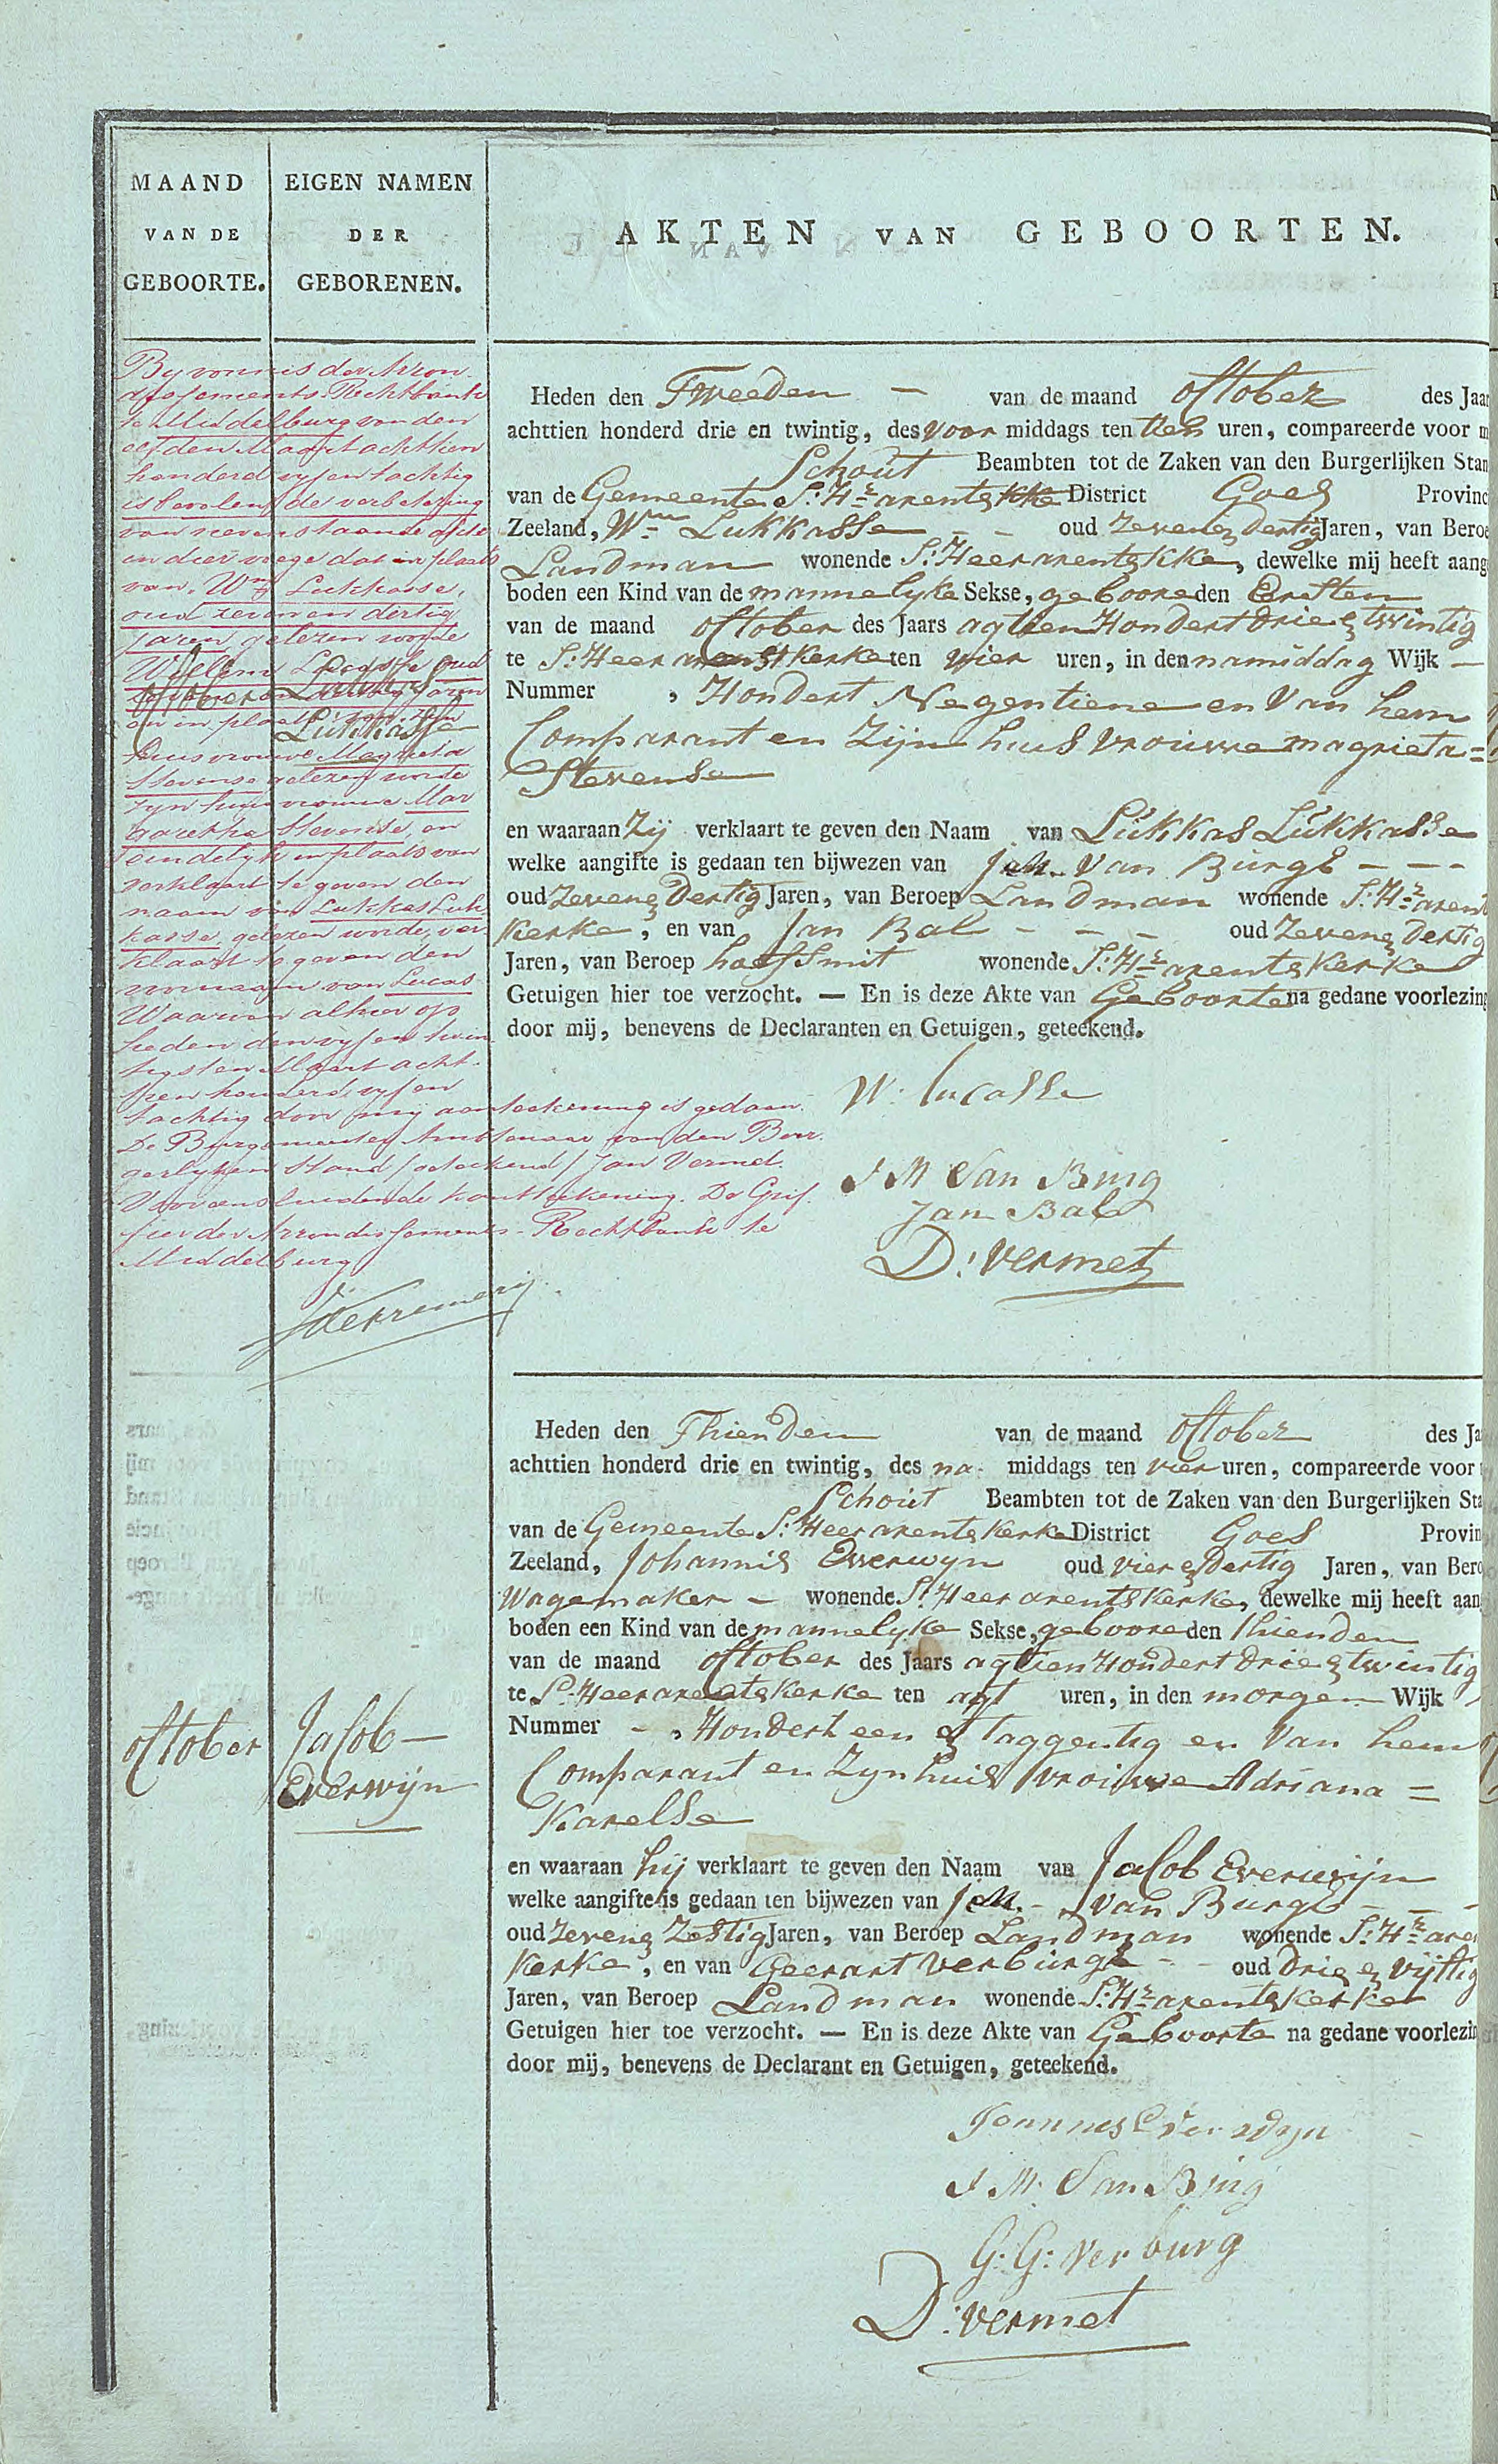 MAAND
VAN DE
GEBOORTE.
EIGEN NAMEN
DER
GEBORENEN.
AKTEN VAN GEBOORTEN.
By vonnis der Arron-
dissements-Rechtbank
te Middelburg van den
elfden Maart achttien
honderd vyfentachtig
is bevolen de verbetering
van nevenstaande akte
in dier voege dat in plaats
van Wm Lukkasse,
oud zevenendertig
jaren gelezen worde
Willem Lucasse oud
jaren
en in plaats van zyn
huisvrouwe Magrieta
Stevense gelezen worde
zyn huisvrouwe Mar
garetha Stevense, en
eindelyk in plaats van
verklaart te geven den
naam van Lukkas Luk
kasse, gelezen worde, ver
klaart te geven den
voornaam van Lucas
Waarvan alhier op
heden den vyfentwin
tigsten Maart acht-
tien honderd vyfen
tachtig door my aanteekening is gedaan.
De Burgemeester Ambtenaar van den Bur-
gerlyken Stand /geteekend/ Jan Vermet.
Voor eensluidende kantteekening. De Grif-
fier der Arrondissements-Rechtbank te
Middelburg
October Lukkas
Lukkasse
Heden den Tweeden – van de maand October des Jaar
achttien honderd drie en twintig, des voor middags ten tien uren, compareerde voor m
Schout Beambten tot de Zaken van den Burgerlijken Stan
van de Gemeente S: Hr arentskke District Goes Provinc
Zeeland, Wm Lukkasse – oud Zeven & dertig Jaren, van Beroe
Landman wonende S: Heer arentskke, dewelke mij heeft aang
boden een Kind van de mannelyke Sekse, geboore den Eersten
van de maand October des Jaars agtien Hondert drie & twintig
te S: Heer arentskerke ten vier uren, in den namiddag Wijk –
Nummer , Hondert Negentiene en Van hem
Comparant en Zijn huis vrouwe magrieta =
Stevense
en waaraan Zij verklaart te geven den Naam van Lukkas Lukkasse
welke aangifte is gedaan ten bijwezen van J:M. Van Burgt – – –
oud Zeven & Dertig Jaren, van Beroep Landman wonende S: Hr arent
kerke, en van Jan Bal – – – oud Zeven & Dertig
Jaren, van Beroep hoefsmit wonende S: Hr arentskerke
Getuigen hier toe verzocht. — En is deze Akte van Geboorte na gedane voorlezing
door mij, benevens de Declaranten en Getuigen, geteekend.
W: Lucasse
J M Van Burg
Jan Bal
D: Vermet
Heden den Thienden van de maand October des Ja
achttien honderd drie en twintig, des na- middags ten vier uren, compareerde voor
Schout Beambten tot de Zaken van den Burgerlijken Sta
van de Gemeente S: Heer arentskerke District Goes Provin
Zeeland, Johannis Everwyn oud vier & Dertig Jaren, van Bero
Wagemaker – wonende S: Heer arentskerke, dewelke mij heeft aan
boden een Kind van de mannelyke Sekse, geboore den Thienden
van de maand October des Jaars agtien Hondert drie & twintig
te S: Heer arentskerke ten agt uren, in den morgen Wijk
Nummer – , Hondert een & taggentig en Van hem
Comparant en Zyn huis vrouwe Adriana =
Karelse
October Jacob –
Everwijn
en waaraan hij verklaart te geven den Naam van Jacob Everwijn
welke aangifte is gedaan ten bijwezen van J:M. – Van Burgt – – –
oud Zeven & Zestig Jaren, van Beroep Landman wonende S: Hr aren
kerke, en van Geerart Verburgt – – oud Drie & Vijftig
Jaren, van Beroep Landman wonende S: Hr arentskerke
Getuigen hier toe verzocht. — En is deze Akte van Geboorte na gedane voorlezin
door mij, benevens de Declarant en Getuigen, geteekend.
Joannes Everwyn
J. M. Van Burg
G: G: Verburg
D: Vermet